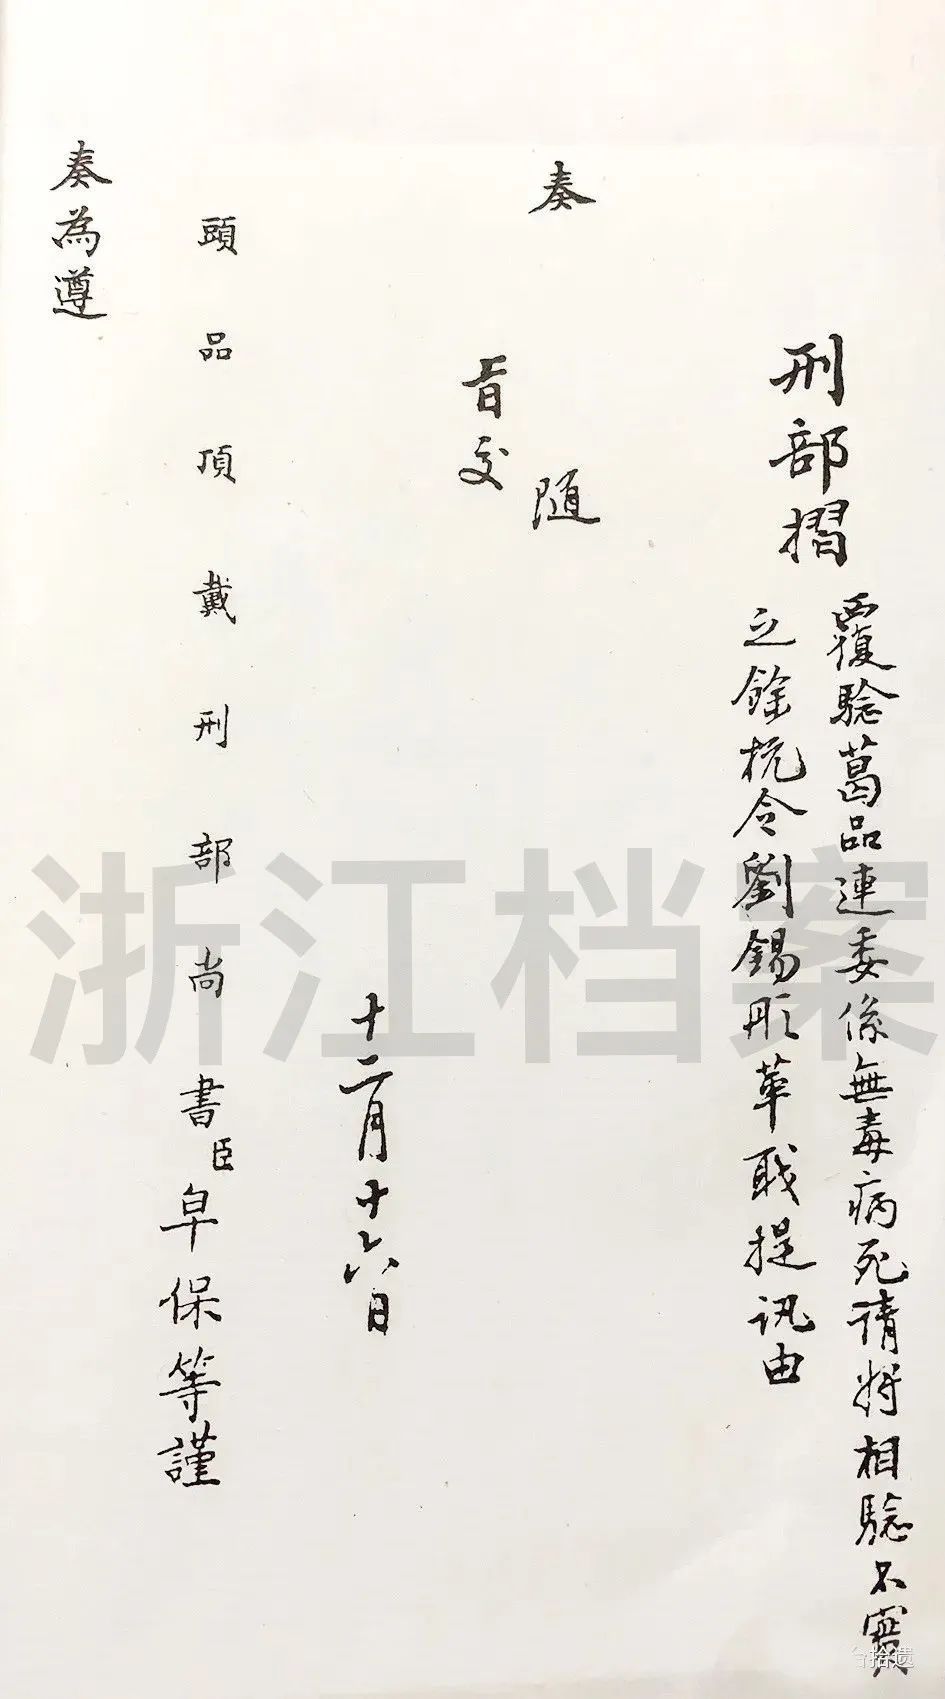 刑部摺
覆驗葛品連委係無毒病死請將相驗不實
之餘杭令劉錫彤革職提訊由
奏
随
旨交
十二月十六日
頭品頂戴刑部尚書臣皁保等謹
奏為遵
浙江档案
拾遗